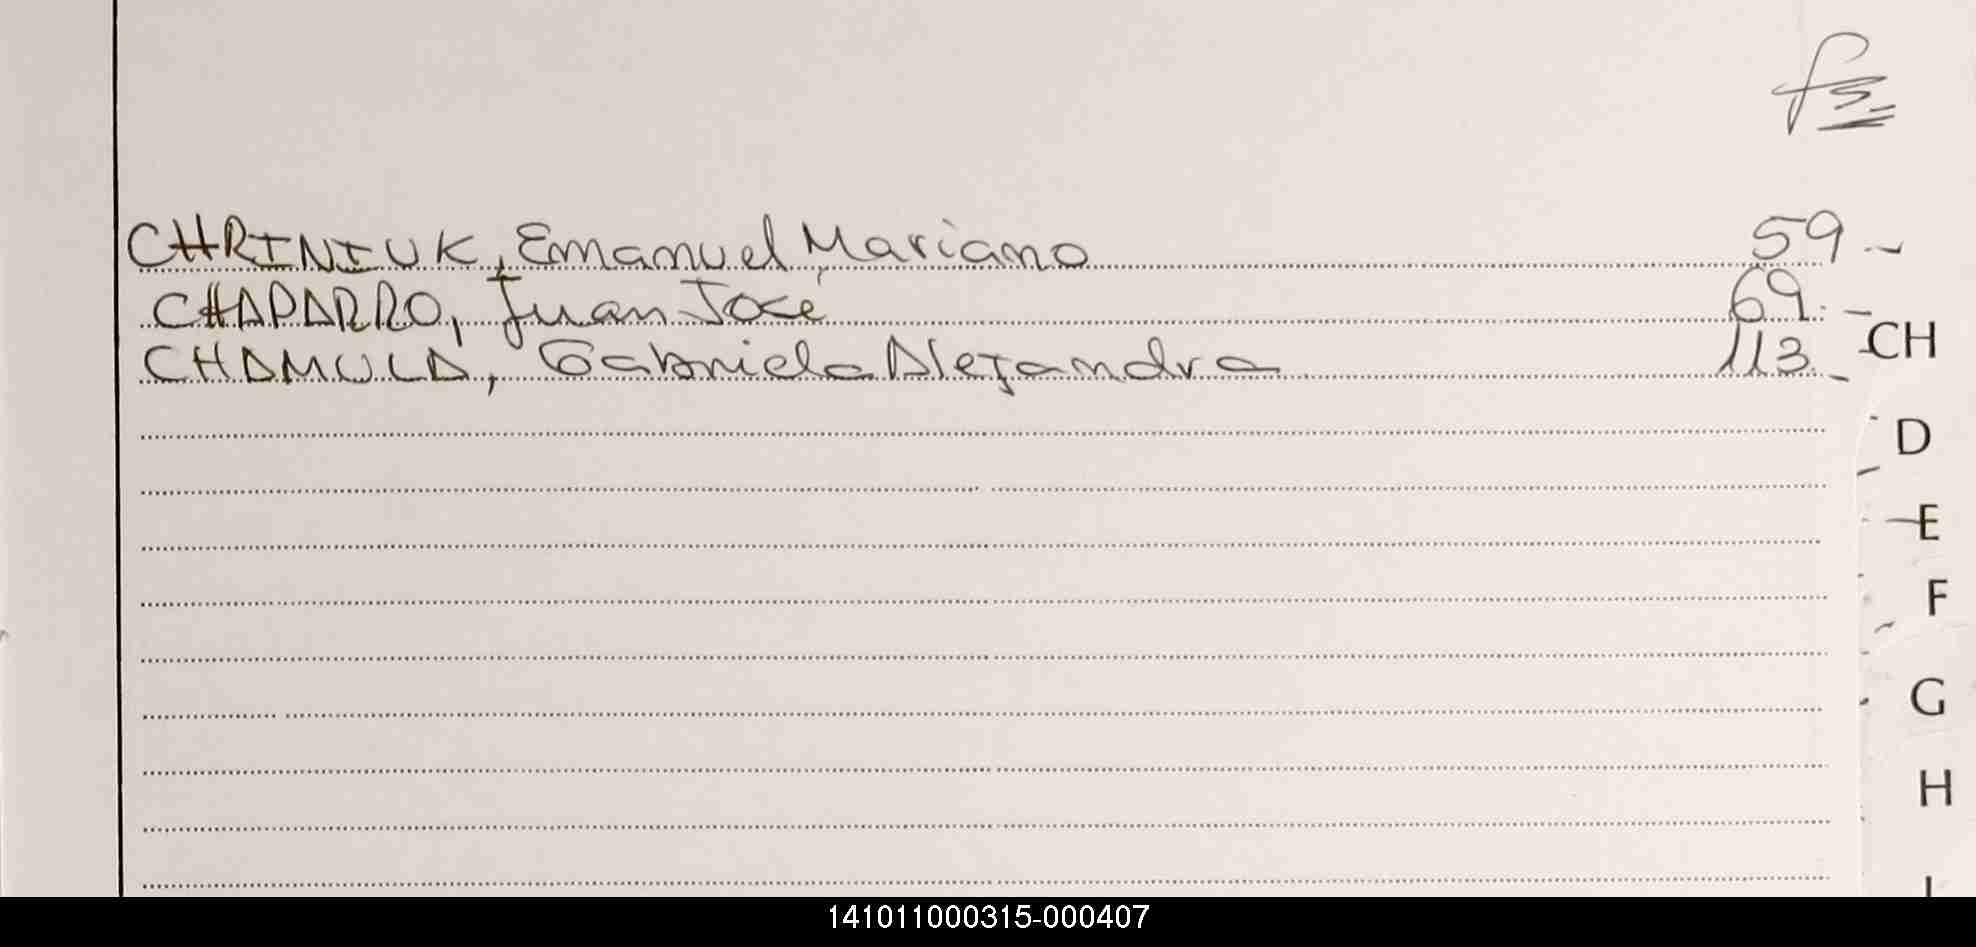 fs
CHRINIUK, Emanuel Mariano 59
CHAPARRO, Juan José 69
CHAMULA, Gabriela Alejandra 113
CH
D
E
F
G
H
I
141011000315-000407